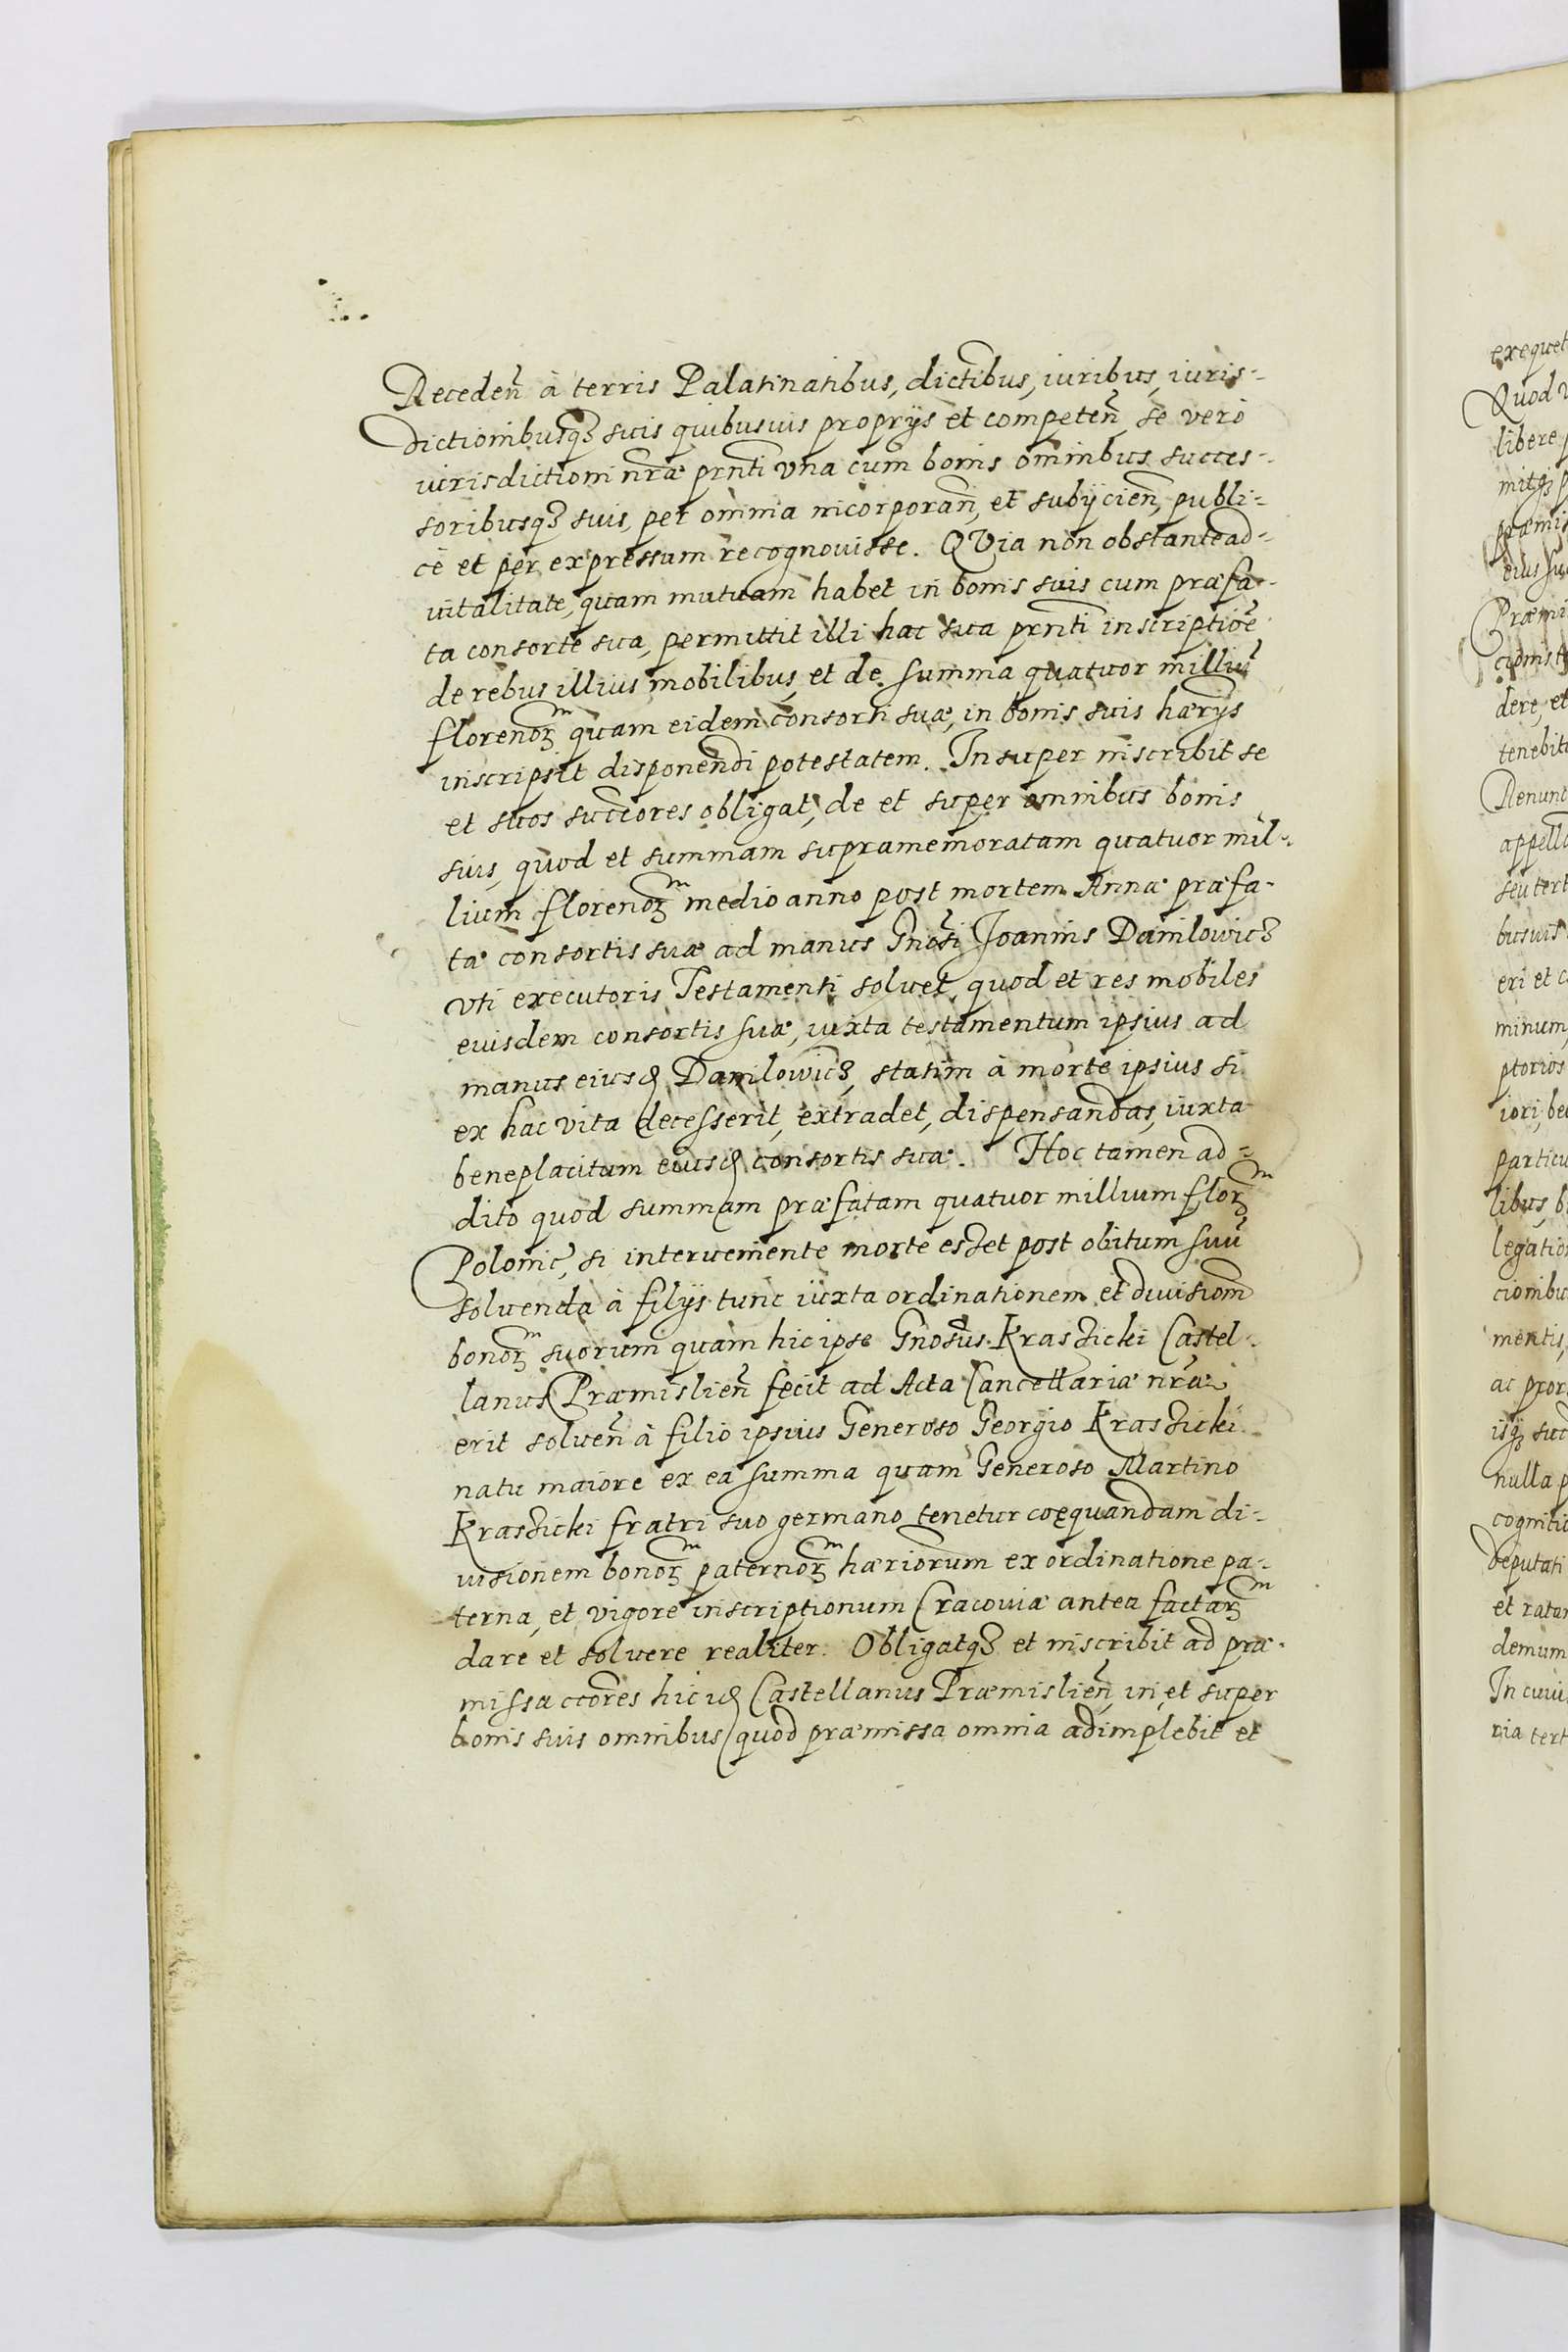 Receden̄ à terris Palatinatibus, dictibus, iuribus, iuris-
dictionibusqꝫ suis quibusuis proprijs et competen̄ se vero
iurisdictioni nr̃æ prnti vna cum bonis omnibus succes-
soribusqꝫ suis, per omnia incorporan̄, et subijcien̄, publi-
cè et per expressum recognouisse. QVia non obstante ad-
uitalitate, quam mutuam habet in bonis suis cum præfa-
ta consorte sua, permittit illi hac sua prnti inscriptiõe
de rebus illius mobilibus, et de summa quatuor milliũ
florenoꝝm quam eidem consorti suæ, in bonis suis hærijs
inscripsit disponendi potestatem. Insuper inscribit se
et suos succores obligat, de et super omnibus bonis
suis, quod et summam supramemoratam quatuor mil-
lium florenoꝝm medio anno post mortem Annæ præfa-
tæ consortis suæ ad manus Gnosi Joannis Danilowicz
vti executoris Testamenti soluet, quod et res mobiles
eiusdem consortis suæ, iuxta testamentum ipsius ad
manus eiusd Danilowicz, statim à morte ipsius si
ex hac vita decesserit, extradet, dispensandas, iuxta
beneplacitum eiusd consortis suæ. Hoc tamen ad-
dito quod summam præfatam quatuor millium floꝝm
Polonic̃, si interueniente morte esset post obitum suũ
soluenda à filijs tunc iuxta ordinationem et diuisionm
bonoꝝm suorum quam hic ipse Gnosus Kraszicki Castel-
lanus Præmislien̄ fecit ad Acta Cancellariæ nr̃æ
erit soluen̄ à filio ipsius Generoso Georgio Kraszicki
natu maiore ex ea summa quam Generoso Martino
Kraszicki fratri suo germano tenetur coęquandam di-
uisionem bonoꝝm paternoꝝm hæriorum ex ordinatione pa-
terna, et vigore inscriptionum Cracouiæ antea factaꝝm
dare et soluere realiter. Obligatqꝫ et inscribit ad præ-
missa ccores hic id Castellanus Præmislien̄, in, et super
bonis suis omnibus quod præmissa omnia adimplebit et
exequet
Quod
libere
præmis
eius
Præmi
dere, et
tenebit
Renunt
appella
seu tert
busuis
eri et c
minum,
ptorios
iori, be
particu
libus, b
legatio
cionibu
mentis,
ac pror
nulla p
cognitio
deputati
et ratam
demum
In cuiu
ria tert